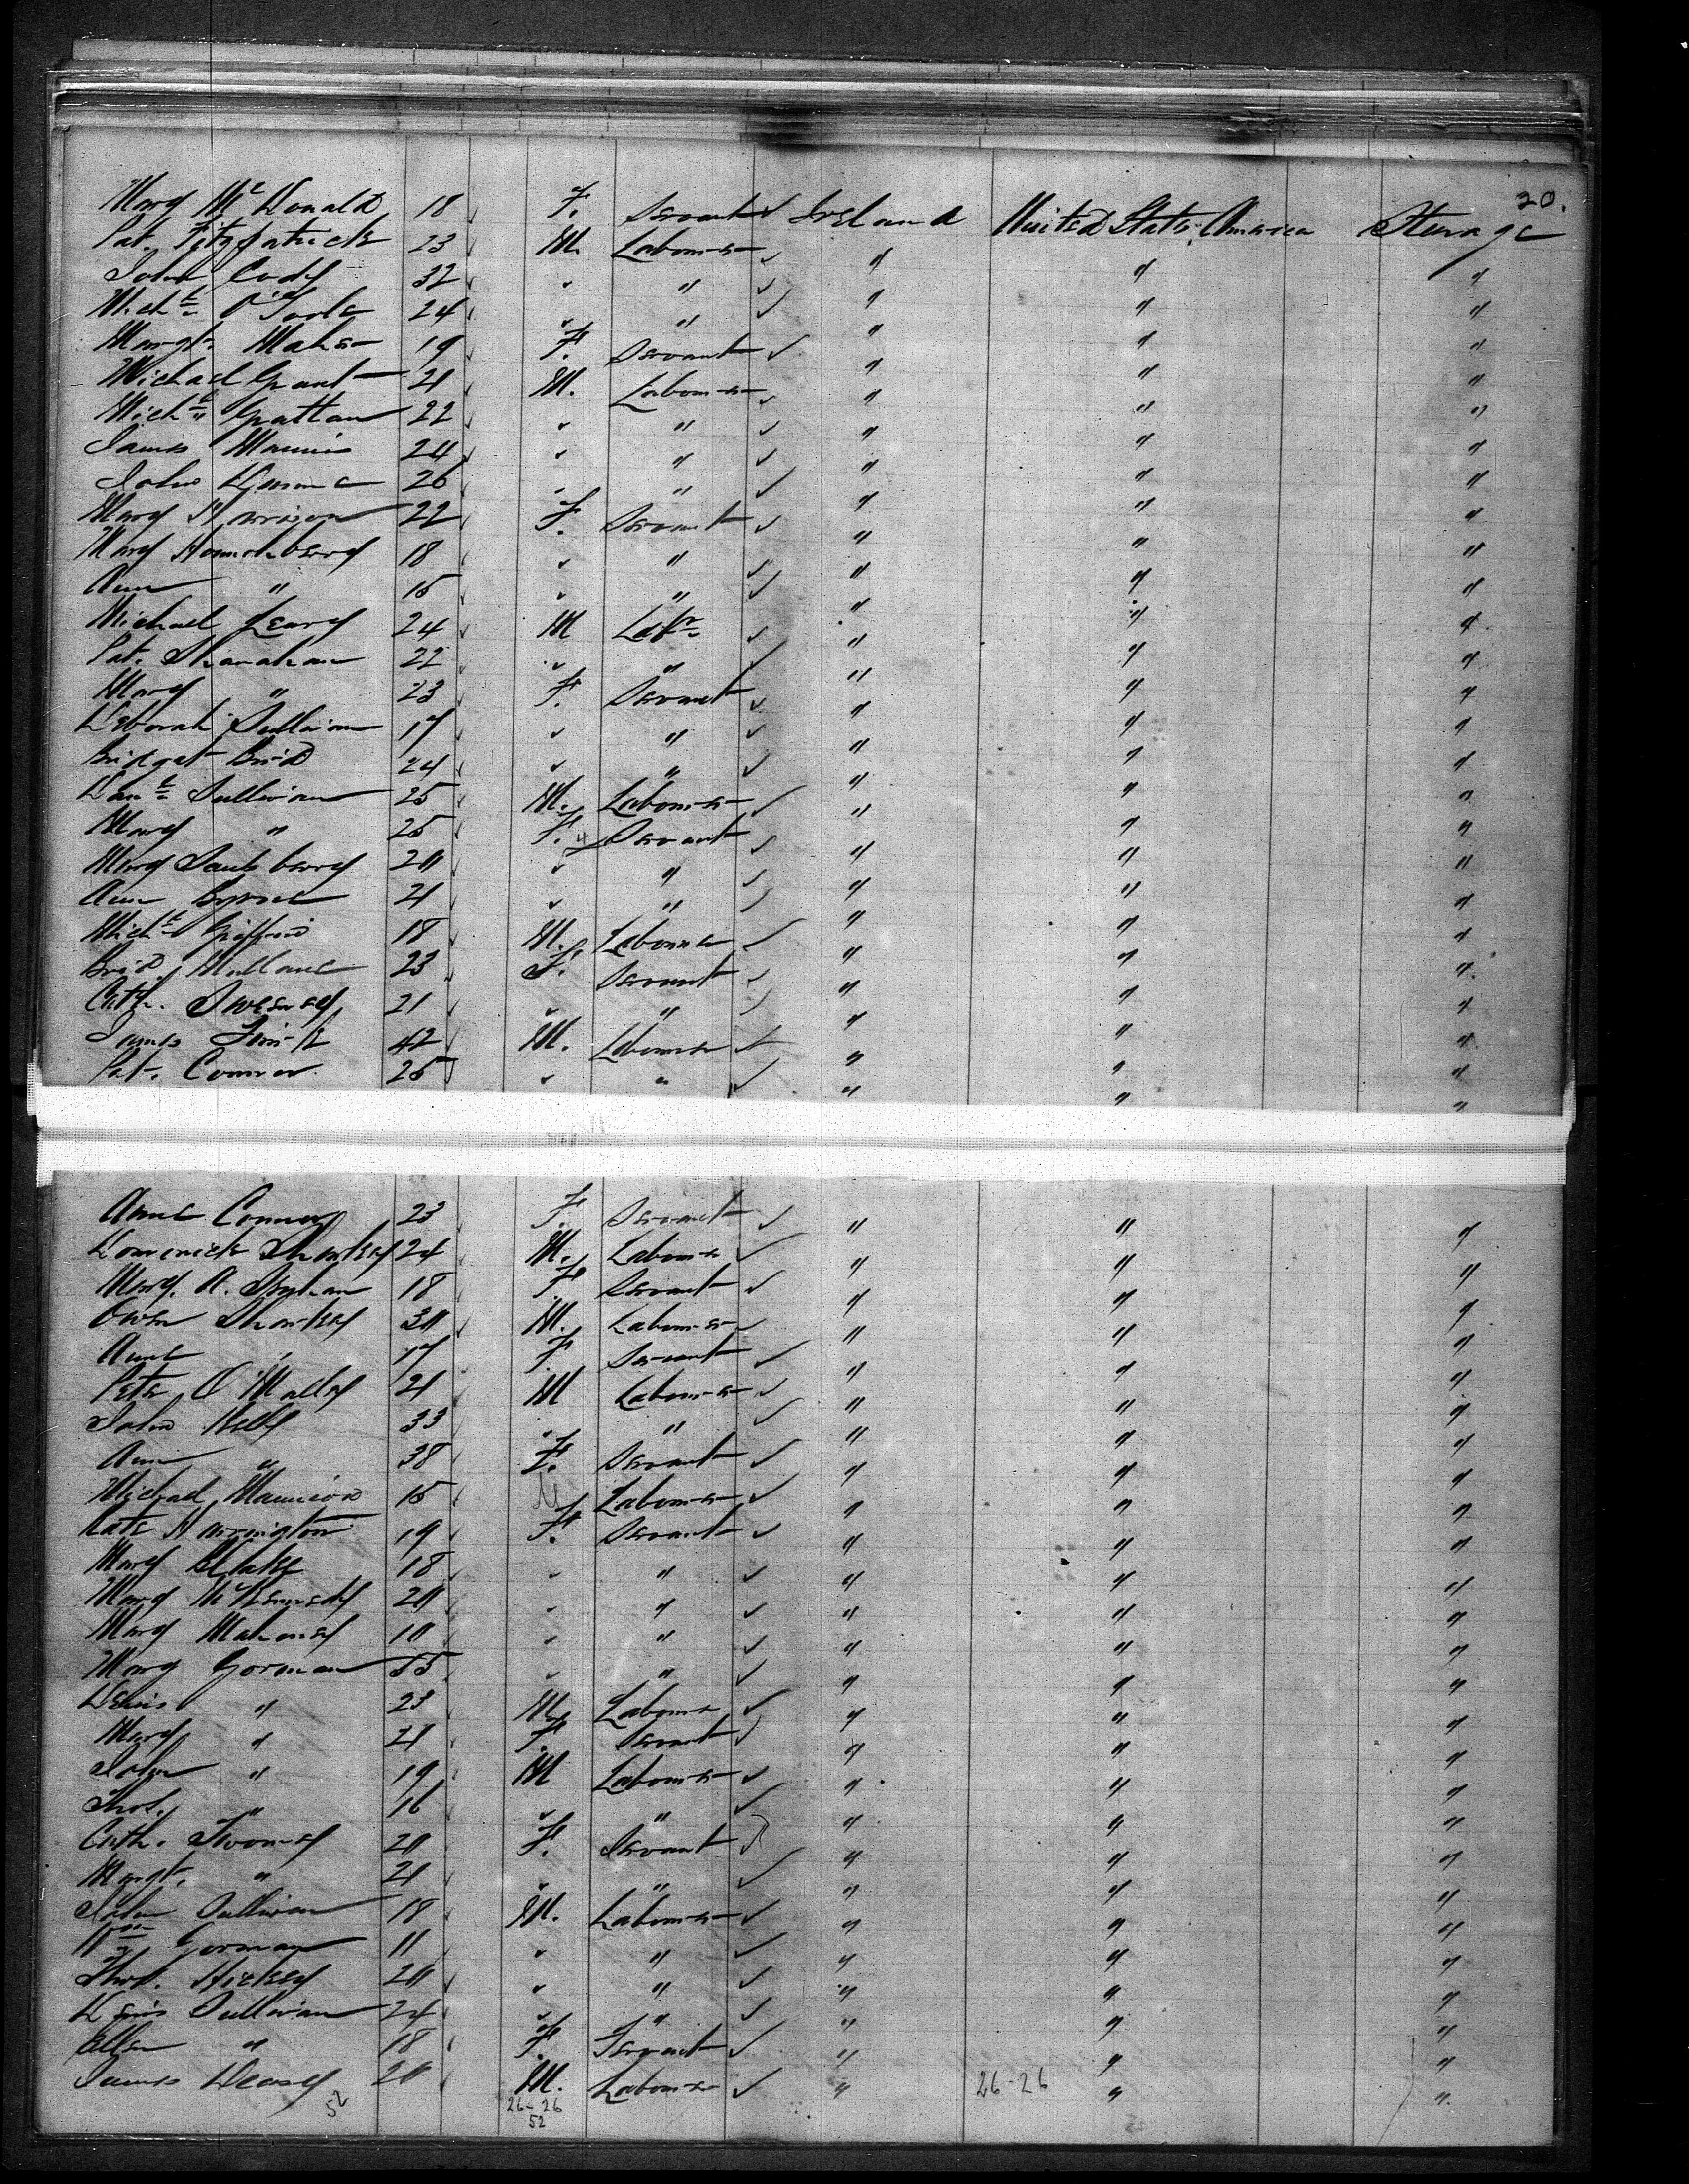 20.
Mary McDonald 18 F. Servant Ireland United States America Steerage
Pat. Fitzpatrick 23 M. Labourer " " "
John Cody 32 " " " " "
Michl O'Toole 24 " " " " "
Margt. Maher 19 F. Servant " " "
Michael Grant 21 M. Labourer " " "
Michl Grattan 22 " " " " "
James Mannis 24 " " " " "
John 26 " " " " "
Mary Harrison 22 F. Servant " " "
Mary 18 " " " " "
Ann " 15 " " " " "
Michael Leary 24 M Labr " " "
Pat. Shanahan 22 " " " " "
Mary " 23 F. Servant " " "
Deborah Sullivan 17 " " " " "
Bridget Bird 24 " " " " "
Danl Sullivan 25 M. Labourer " " "
Mary " 25 F. 4 Servant " " "
Mary 20 " " " " "
Ann Byrne 21 " " " " "
Michl Griffin 18 M. Labourer " " "
Brid. Mullane 23 F. Servant " " "
Cath. Sweeney 21 " " " " "
James 42 M. Labourer " " "
Pat. Connor 25 " " " " "
Anne Connor 23 F. Servant " " "
Domenick Sharkey 24 M. Labourer " " "
Mary. A. 18 F. Servant " " "
Owen Sharkey 30 M. Labourer " " "
Anne " 17 F. Servant " " "
Peter O'Malley 21 M Labourer " " "
John Kelly 33 " " " " "
Ann " 38 F. Servant " " "
Michael Mannion 15 M Labourer " " "
Kate Harrington 19 F. Servant " " "
Mary Blake 18 " " " " "
Mary McKennedy 20 " " " " "
Mary Mahoney 10 " " " " "
Mary Gorman 55 " " " " "
Denis " 23 M. Labourer " " "
Mary " 21 F. Servant " " "
John " 19 M Labourer " " "
Thos. " 16 " " " " "
Cath. Twomey 20 F. Servant " " "
Margt. " 21 " " " " "
John Sullivan 18 M. Labourer " " "
Wm Gorman 11 " " " " "
Thos. Hickey 20 " " " " "
Denis Sullivan 24 " " " " "
Ellen " 18 F. Servant " " "
James Deasy 20 M. Labourer " 26-26 " "
52 26-26
52